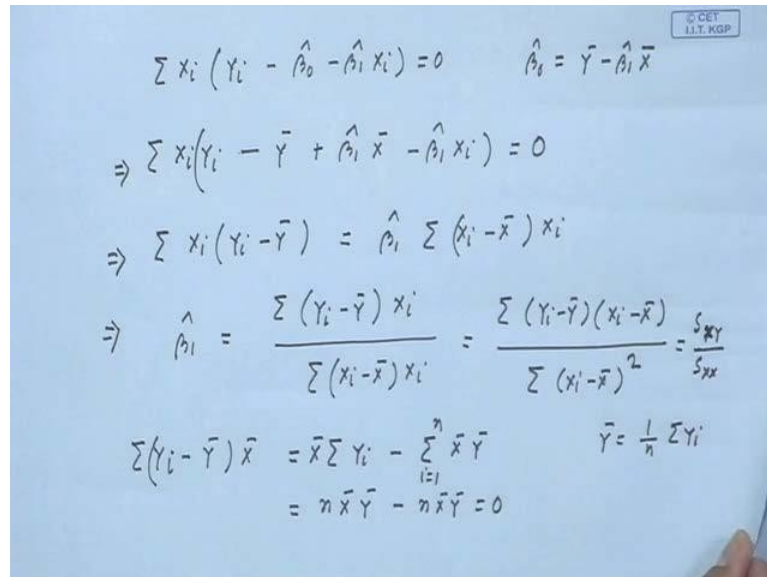 © CET
I.I.T. KGP
Σ xᵢ (Yᵢ - β̂₀ - β̂₁ xᵢ) = 0    β̂₀ = Ȳ - β̂₁ x̄
⇒ Σ xᵢ(Yᵢ - Ȳ + β̂₁ x̄ - β̂₁ xᵢ) = 0
⇒ Σ xᵢ(Yᵢ - Ȳ) = β̂₁ Σ (xᵢ - x̄) xᵢ
⇒ β̂₁ = Σ (Yᵢ - Ȳ) xᵢ / Σ (xᵢ - x̄) xᵢ = Σ (Yᵢ - Ȳ)(xᵢ - x̄) / Σ (xᵢ - x̄)² = Sxy / Sxx
Σ(Yᵢ - Ȳ) x̄ = x̄ Σ Yᵢ - Σᵢ₌₁ⁿ x̄ Ȳ    Ȳ = 1/n ΣYᵢ
= n x̄ Ȳ - n x̄ Ȳ = 0